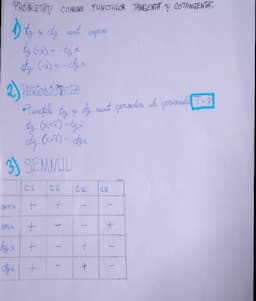 PROPRIETĂȚI COMUNE FUNCȚIILOR TANGENTĂ ȘI COTANGENTĂ
1) tg și ctg sunt impare
tg (-x) = -tg x
ctg (-x) = -ctg x
2) PERIODICITATEA
• Funcțiile tg și ctg sunt periodice de perioadă T=π
tg (x+π) = tg x
ctg (x+π) = ctg x
3) SEMNUL
C I C II C III C IV
sin x + + - -
cos x + - - +
tg x + - + -
ctg x + - + -